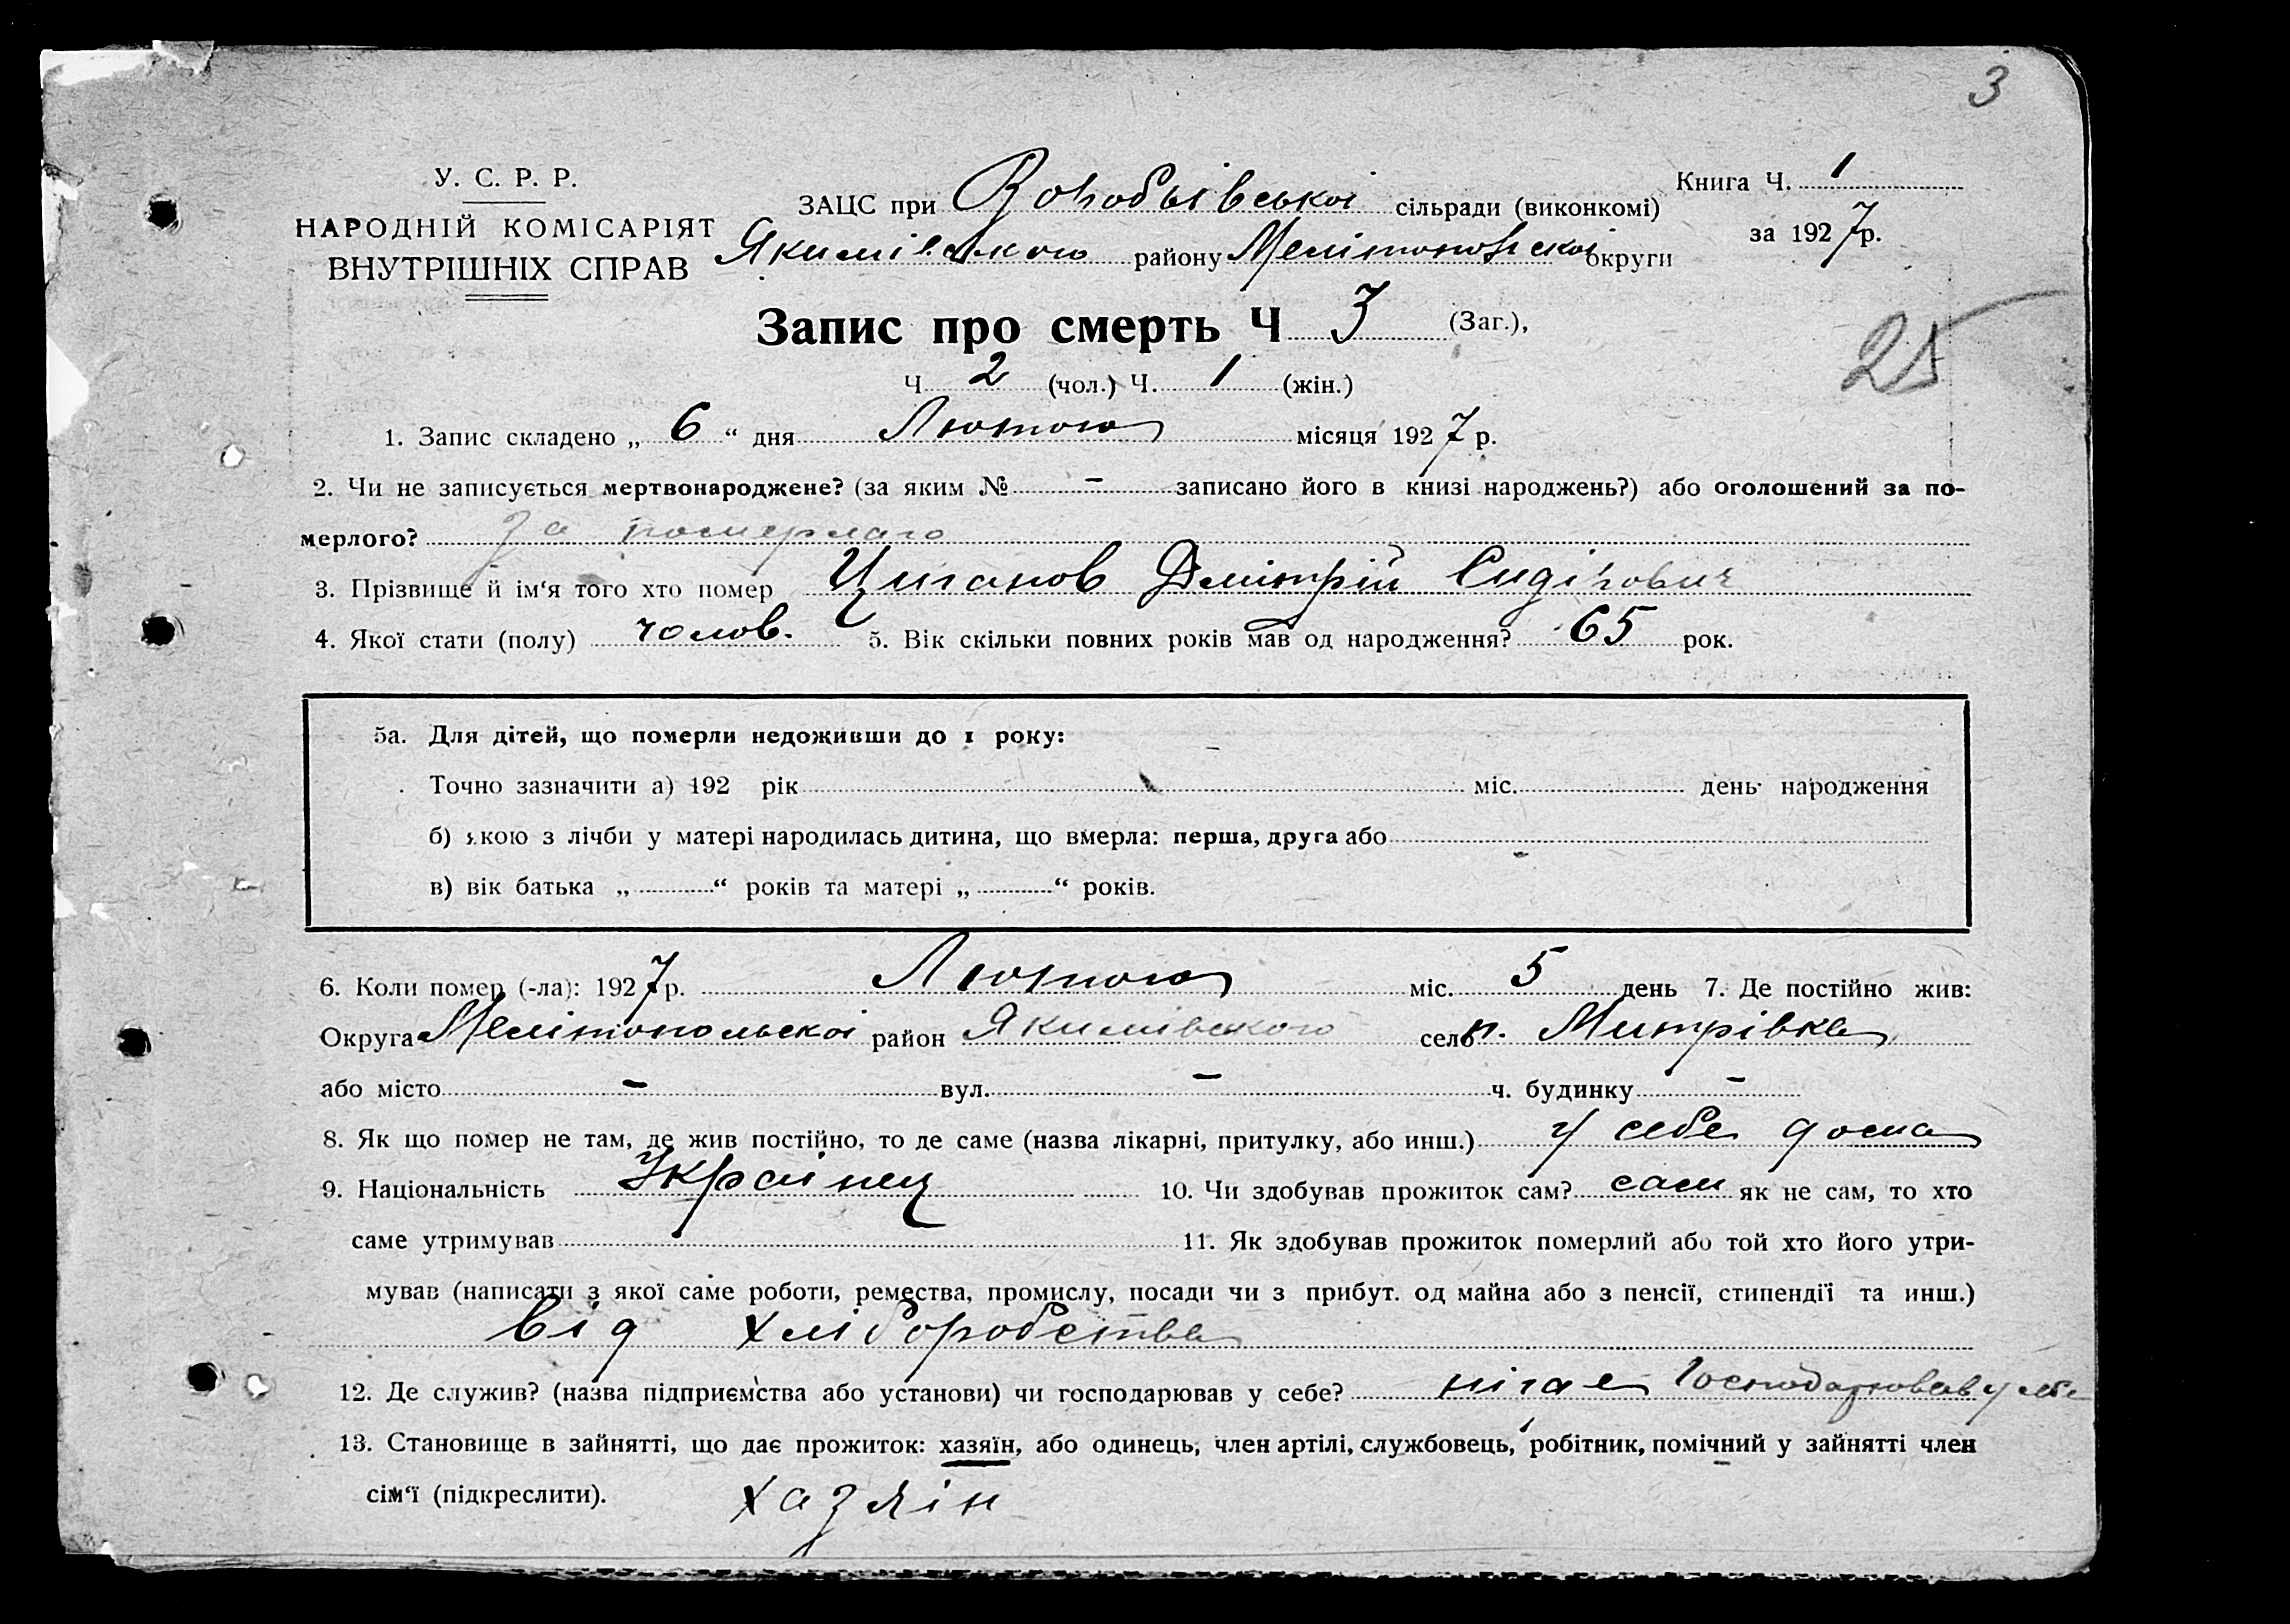 3
У. С. Р. Р.
НАРОДНІЙ КОМІСАРІЯТ
ВНУТРІШНІХ СПРАВ
ЗАЦС при Воробьівської сільради (виконкомі)
Книга Ч. 1
Якимівського району Мелітопольскої округи
за 1927 р.
Запис про смерть Ч 3 (Заг.),
25
Ч 2 (чол.) Ч. 1 (жін.)
1. Запис складено „ 6 “ дня Лютого місяця 1927 р.
2. Чи не записується мертвонароджене? (за яким № - записано його в книзі народжень?) або оголошений за по-
мерлого? За померлаго
3. Прізвище й ім‘я того хто помер Циганов Дмітрій Сидірович
4. Якої стати (полу) чолов. 5. Вік скільки повних років мав од народження? 65 рок.
5а. Для дітей, що померли недоживши до 1 року:
Точно зазначити а) 192 рік міс. день народження
б) якою з лічби у матері народилась дитина, що вмерла: перша, друга або
в) вік батька „ “ років та матері „ “ років.
6. Коли помер (-ла): 1927 р. Лютого міс. 5 день 7. Де постійно жив:
Округа Мелітопольскої район Якимівського село п. Митрівка
або місто - вул. - ч. будинку -
8. Як що помер не там, де жив постійно, то де саме (назва лікарні, притулку, або инш.) у себе дома
9. Національність Українец 10. Чи здобував прожиток сам? сам як не сам, то хто
саме утримував 11. Як здобував прожиток померлий або той хто його утри-
мував (написати з якої саме роботи, ремества, промислу, посади чи з прибут. од майна або з пенсії, стипендії та инш.)
від хліборобства
12. Де служив? (назва підприємства або установи) чи господарював у себе? Господарював у себе
13. Становище в зайнятті, що дає прожиток: хазяїн, або одинець, член артілі, службовець, робітник, помічний у зайнятті член
сім‘ї (підкреслити). хазяін